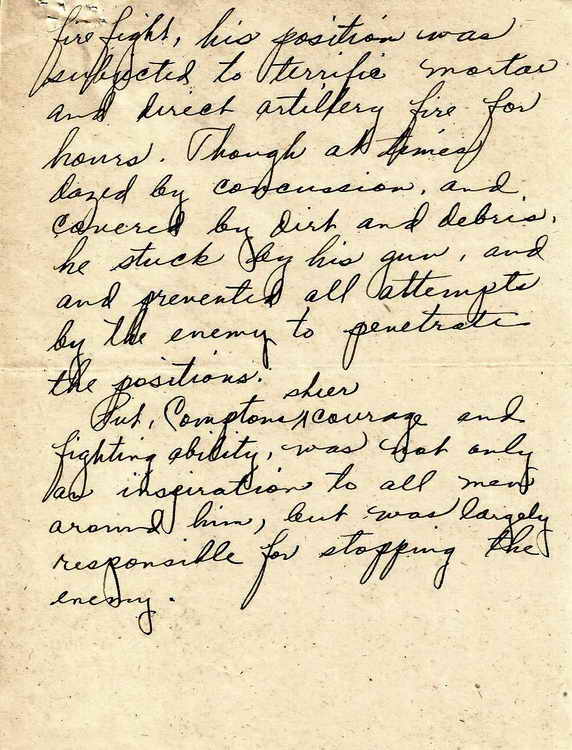 fire fight, his position was
subjected to terrific mortar
and direct artillery fire for
hours. Though at times
dazed by concussion, and
covered by dirt and debris,
he stuck by his gun, and
and prevented all attempts
by the enemy to penetrate
the positions.
sheer
Pvt. Comptons courage and
fighting ability, was not only
an inspiration to all men
around him, but was largely
responsible for stopping the
enemy.